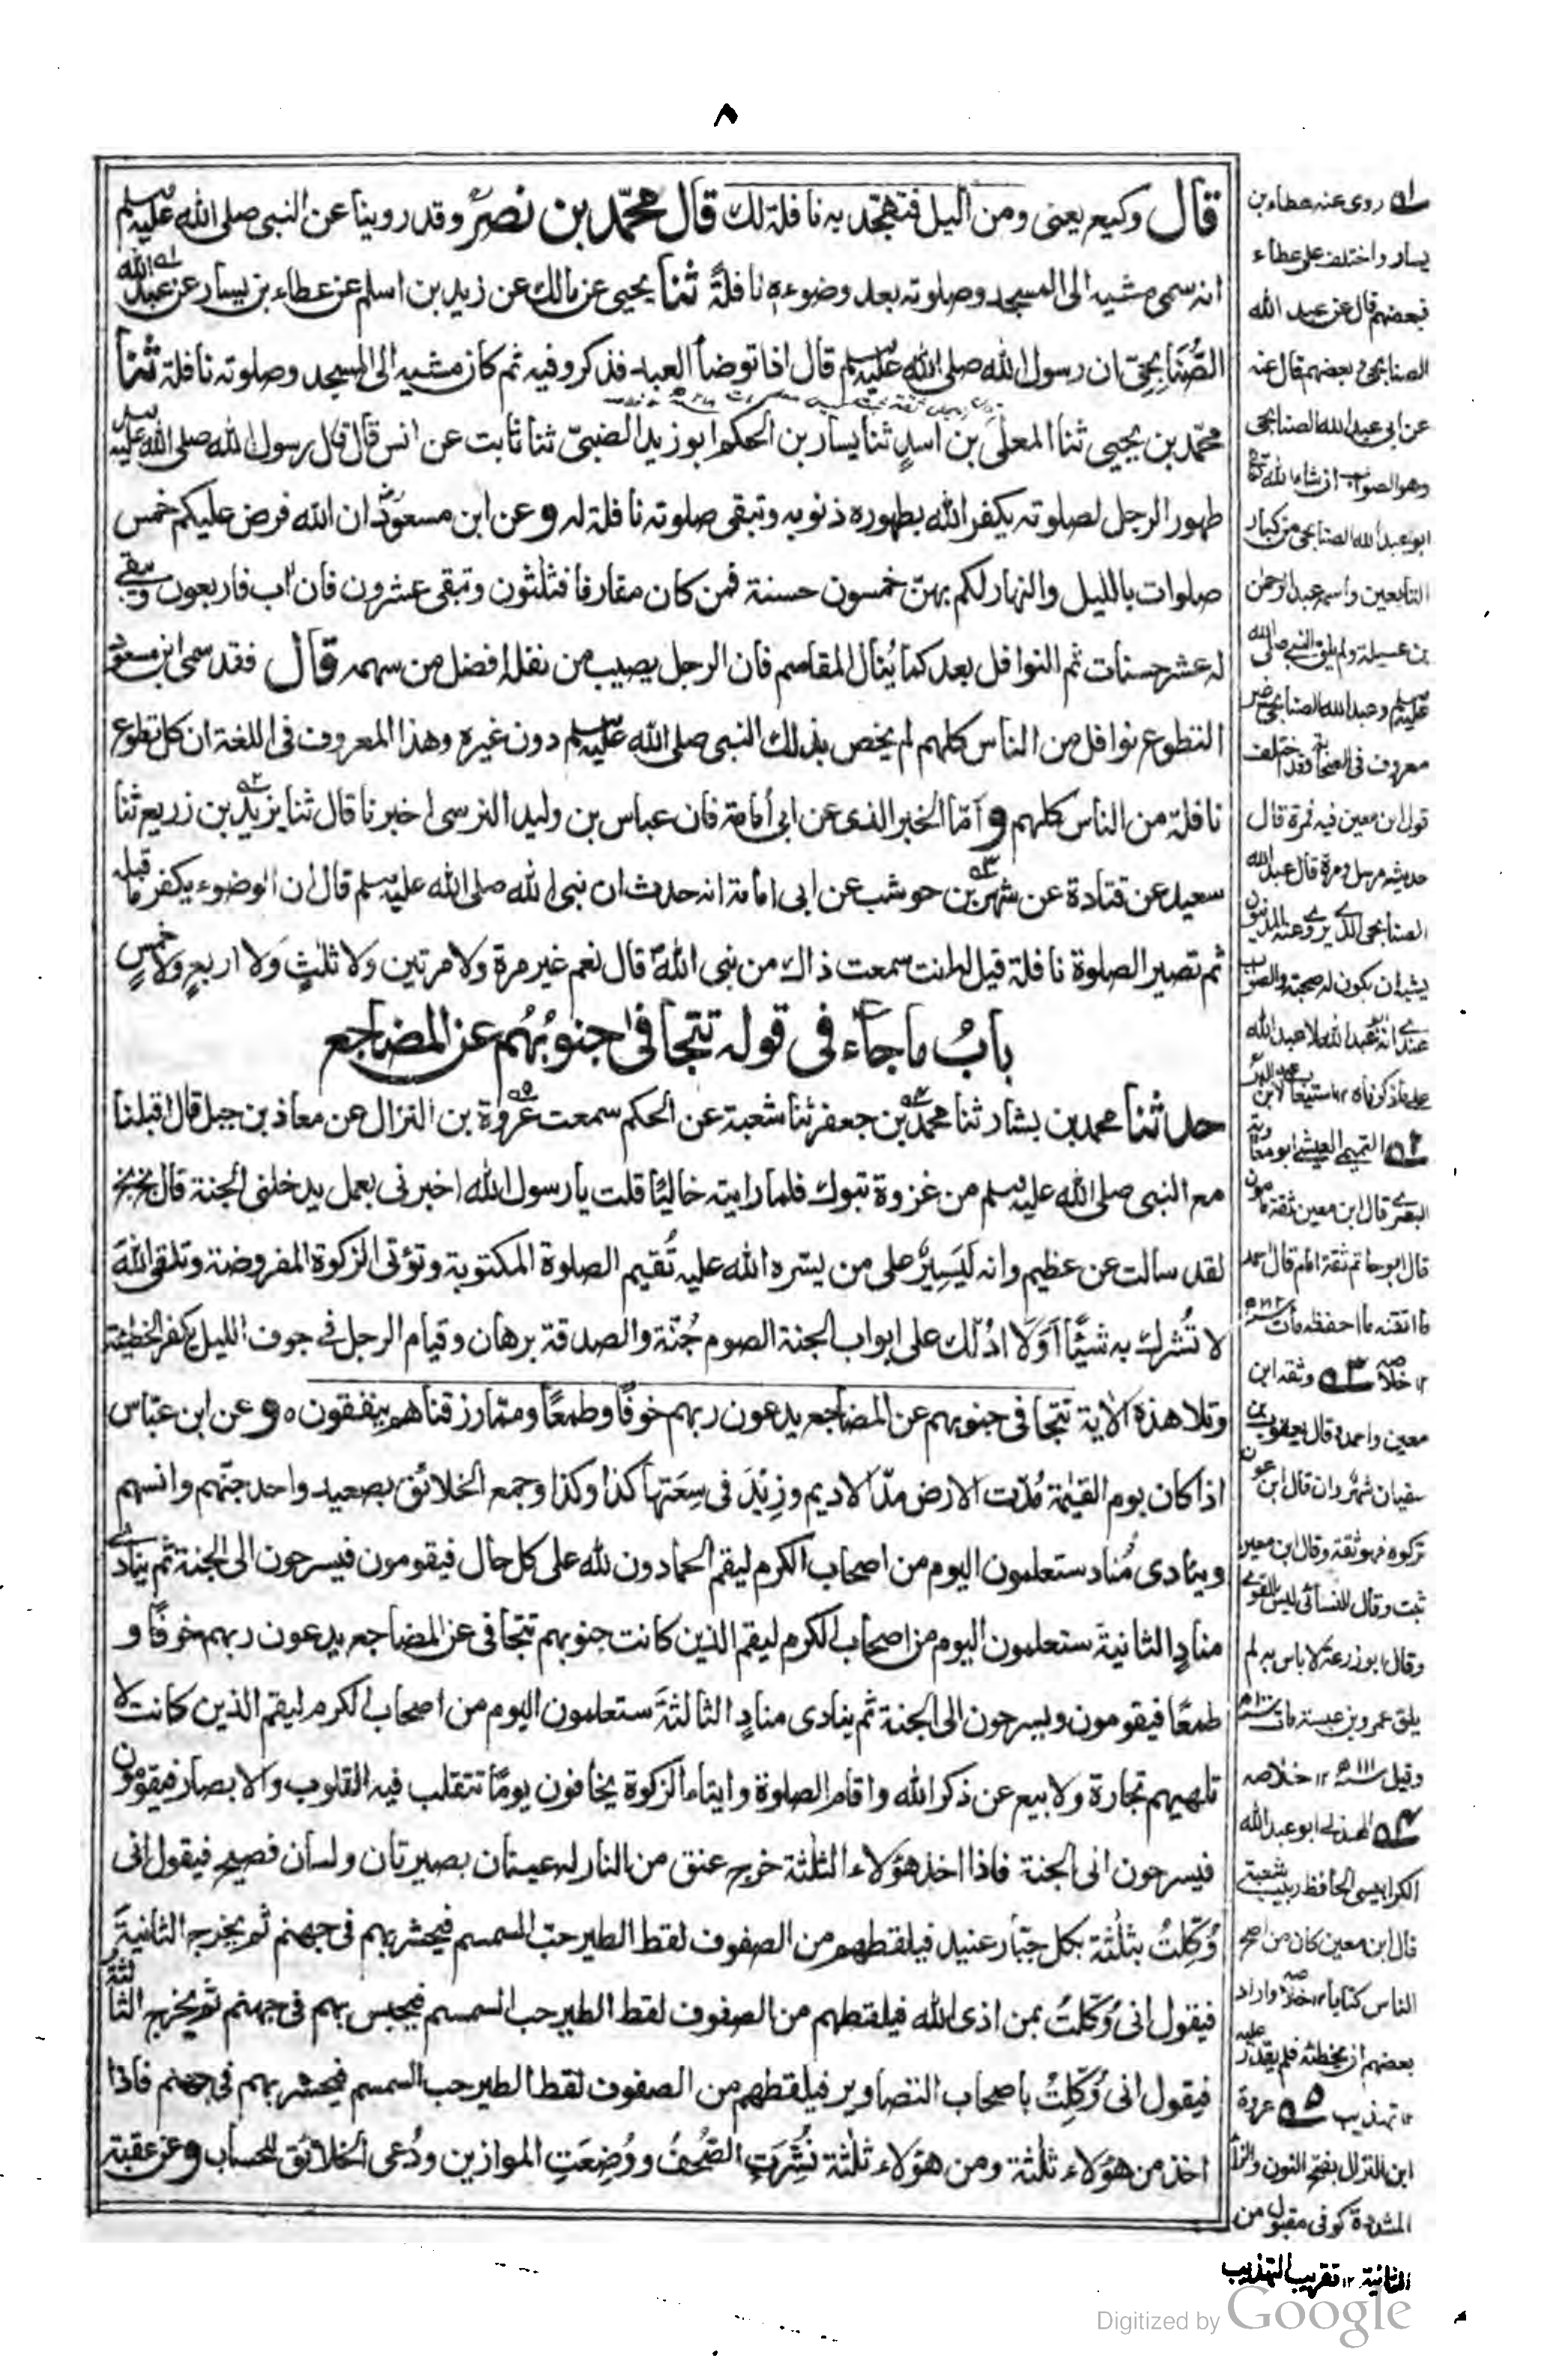 ٨
قال وكيع يعني ومن اليل فتهجد به نافلة لك قال محمّد بن نصر وقد روينا عن النبي صلى الله عليه وسلم
انه سمى مشيه الى المسجد وصلوته بعد وضوءه نافلةً ثنا يحيى عن مالك عن زيد بن اسلم عن عطاء بن يسار عن عبد الله
الصُّنَابِحِيّ ان رسول الله صلى الله عليه وسلم قال اذا توضأ العبد فذكر وفيه ثم كان مشيه الى المسجد وصلوته نافلة ثنا
محمّد بن يحيى ثنا المعلى بن اسدٍ ثنا يسار بن الحكم ابو زيد الضبىّ ثنا ثابت عن انس قال قال رسول الله صلى الله عليه وسلم
طهور الرجل لصلوته يكفر الله بطهوره ذنوبه وتبقى صلوته نافلة له وعن ابن مسعودؓ ان الله فرض عليكم خمس
صلوات بالليل والنهار لكم بهنّ خمسون حسنة فمن كان مقارفا فثلثون وتبقى عشرون فان اب فاربعون ويبقى
له عشر حسنات ثم النوافل بعد كما يُنال المقاسم فان الرجل يصيب من نفله افضل من سهمه قال فقد سمى ابن مسعود
التطوع نوافل من الناس كلهم لم يخص بذلك النبي صلى الله عليه وسلم دون غيره وهذا المعروف فى اللغة ان كل تطوع
نافلة من الناس كلهم وأمّا الخبر الذى عن ابى أمامة فان عباس بن وليد النرسى اخبرنا قال ثنا يزيد بن زريع ثنا
سعيد عن قتادة عن شهر بن حوشب عن ابى امامة انه حدث ان نبى الله صلى الله عليه وسلم قال ان الوضوء يكفر ما قبله
ثم تصير الصلوة نافلة قيل له انت سمعت ذاك من نبى الله قال نعم غير مرة ولا مرتين ولا ثلثٍ وَلا اربعٍ ولا خمسٍ
بابُ ما جاء فى قوله تتجافى جنوبُهُم عن المضاجع
حدثنا محمد بن بشار ثنا محمّد بن جعفر ثنا شعبة عن الحكم سمعت عروة بن النزال عن معاذ بن جبل قال اقبلنا
مع النبى صلى الله عليه وسلم من غزوة تبوك فلما رايته خاليًا قلت يا رسول الله اخبرنى بعمل يدخلنى الجنة قال بخ بخ
لقد سالت عن عظيم وانه لَيَسِيرٌ على من يسّره الله عليه تُقيم الصلوة المكتوبة وتؤتى الزكوة المفروضة وتلقى اللهَ
لا تُشرك به شيئًا اَوَلَا ادُلّك على ابواب الجنة الصوم جُنّة والصدقة برهان وقيام الرجل فى جوف الليل يكفر الخطيئة
وتلا هذه الاٰية تتجافى جنوبهم عن المضاجع يدعون ربهم خوفًا وطمعًا وممّا رزقناهم ينفقون ه وعن ابن عبّاس
اذا كان يوم القيٰمة مُدّت الارض مدّ الاديم وزِيْدَ فى سِعَتِها كذا وكذا وجمع الخلائق بصعيد واحد جنّهم وانسهم
وينادى مُناد ستعلمون اليوم من اصحاب الكرم ليقم الحمادون لله على كل حال فيقومون فيسرحون الى الجنة ثم ينادى
منادٍ الثانية ستعلمون اليوم من اصحاب الكرم ليقم الذين كانت جنوبهم تتجافى عن المضاجع يدعون ربهم خوفًا و
طمعًا فيقومون ويسرحون الى الجنة ثم ينادى منادٍ الثالثةَ ستعلمون اليوم من اصحاب الكرم ليقم الذين كانت لا
تلهيهم تجارة ولا بيع عن ذكر الله واقام الصلوة وايتاء الزكوة يخافون يومًا تتقلب فيه القلوب والابصار فيقومون
فيسرحون الى الجنة فاذا اخذ هؤلاء الثلثة خرج عنق من النار له عينان بصيرتان ولسان فصيح فيقول انى
وُكِّلتُ بثلثة بكل جبّار عنيد فيلقطهم من الصفوف لقط الطير حبّ السمسم فيحشر بهم فى جهنم ثم يخرج الثانيةَ
فيقول انى وُكّلتُ بمن اذى الله فيلقطهم من الصفوف لقط الطير حب السمسم فيحبس بهم فى جهنم ثم يخرج الثالثة
فيقول انى وُكِّلتُ باصحاب التصاوير فيلقطهم من الصفوف لقط الطير حب السمسم فيحشر بهم فى جهنم فاذا
اخذ من هؤلاء ثلثة ومن هؤلاء ثلثة نُشِّرَتِ الصُّحُفُ ووُضِعَتِ الموازين ودُعى الخلائق للحساب وعن عقبة
ا؎ روى عنه عطاء بن
يسار واختلف على عطاء
فبعضهم قال عن عبد الله
الصنابحي وبعضهم قال عنه
عن ابى عبد الله الصنابحى
وهو الصواب ان شاء الله تعالى
ابو عبد الله الصنابحى من كبار
التابعين واسمه عبد الرحمٰن
بن عسيلة ولم يلق النبى صلى الله
عليه وسلم وعبد الله الصنابحى غير
معروف فى الصحابة وقد اختلف
قول ابن معين فيه فمرة قال
حديثه مرسل ومرة قال عبد الله
الصنابحى الذى يروى عنه المدنيون
يشبه ان يكون له صحبة والصواب
عندى انه ابو عبد الله لا عبد الله
على ما ذكرناه ١٢ استيعاب لابن عبد البر
٢؎ التميمى العيشى ابو معاوية
البصرى قال ابن معين ثقة مامون
قال ابو حاتم ثقة امام قال احمد
ما اتقنه ما احفظه مات سنة ١٨٢ه
١٢ خلاصه ٣؎ وثقه ابن
معين واحمد وقال يعقوب بن
سفيان شهر وان قال ابن عون
تركوه فهو ثقة وقال ابن معين
ثبت وقال النسائى ليس بالقوى
وقال ابو زرعة لا باس به لم
يلق عمرو بن عبسة مات سنة ١٠٠ه
وقيل سنة ١١١ه ١٢ خلاصه
٤؎ الهذلى ابو عبد الله
الكرابيسى الحافظ ربيب شعبة
قال ابن معين كان من اصح
الناس كتابا ١٢ خلاصه واراد
بعضهم ان يخطئه فلم يقدر عليه
١٢ تهذيب ٥؎ عروة
ابن النزال بفتح النون والزاى
المشددة كوفى مقبول من
الثانية ١٢ تقريب التهذيب
Digitized by Google